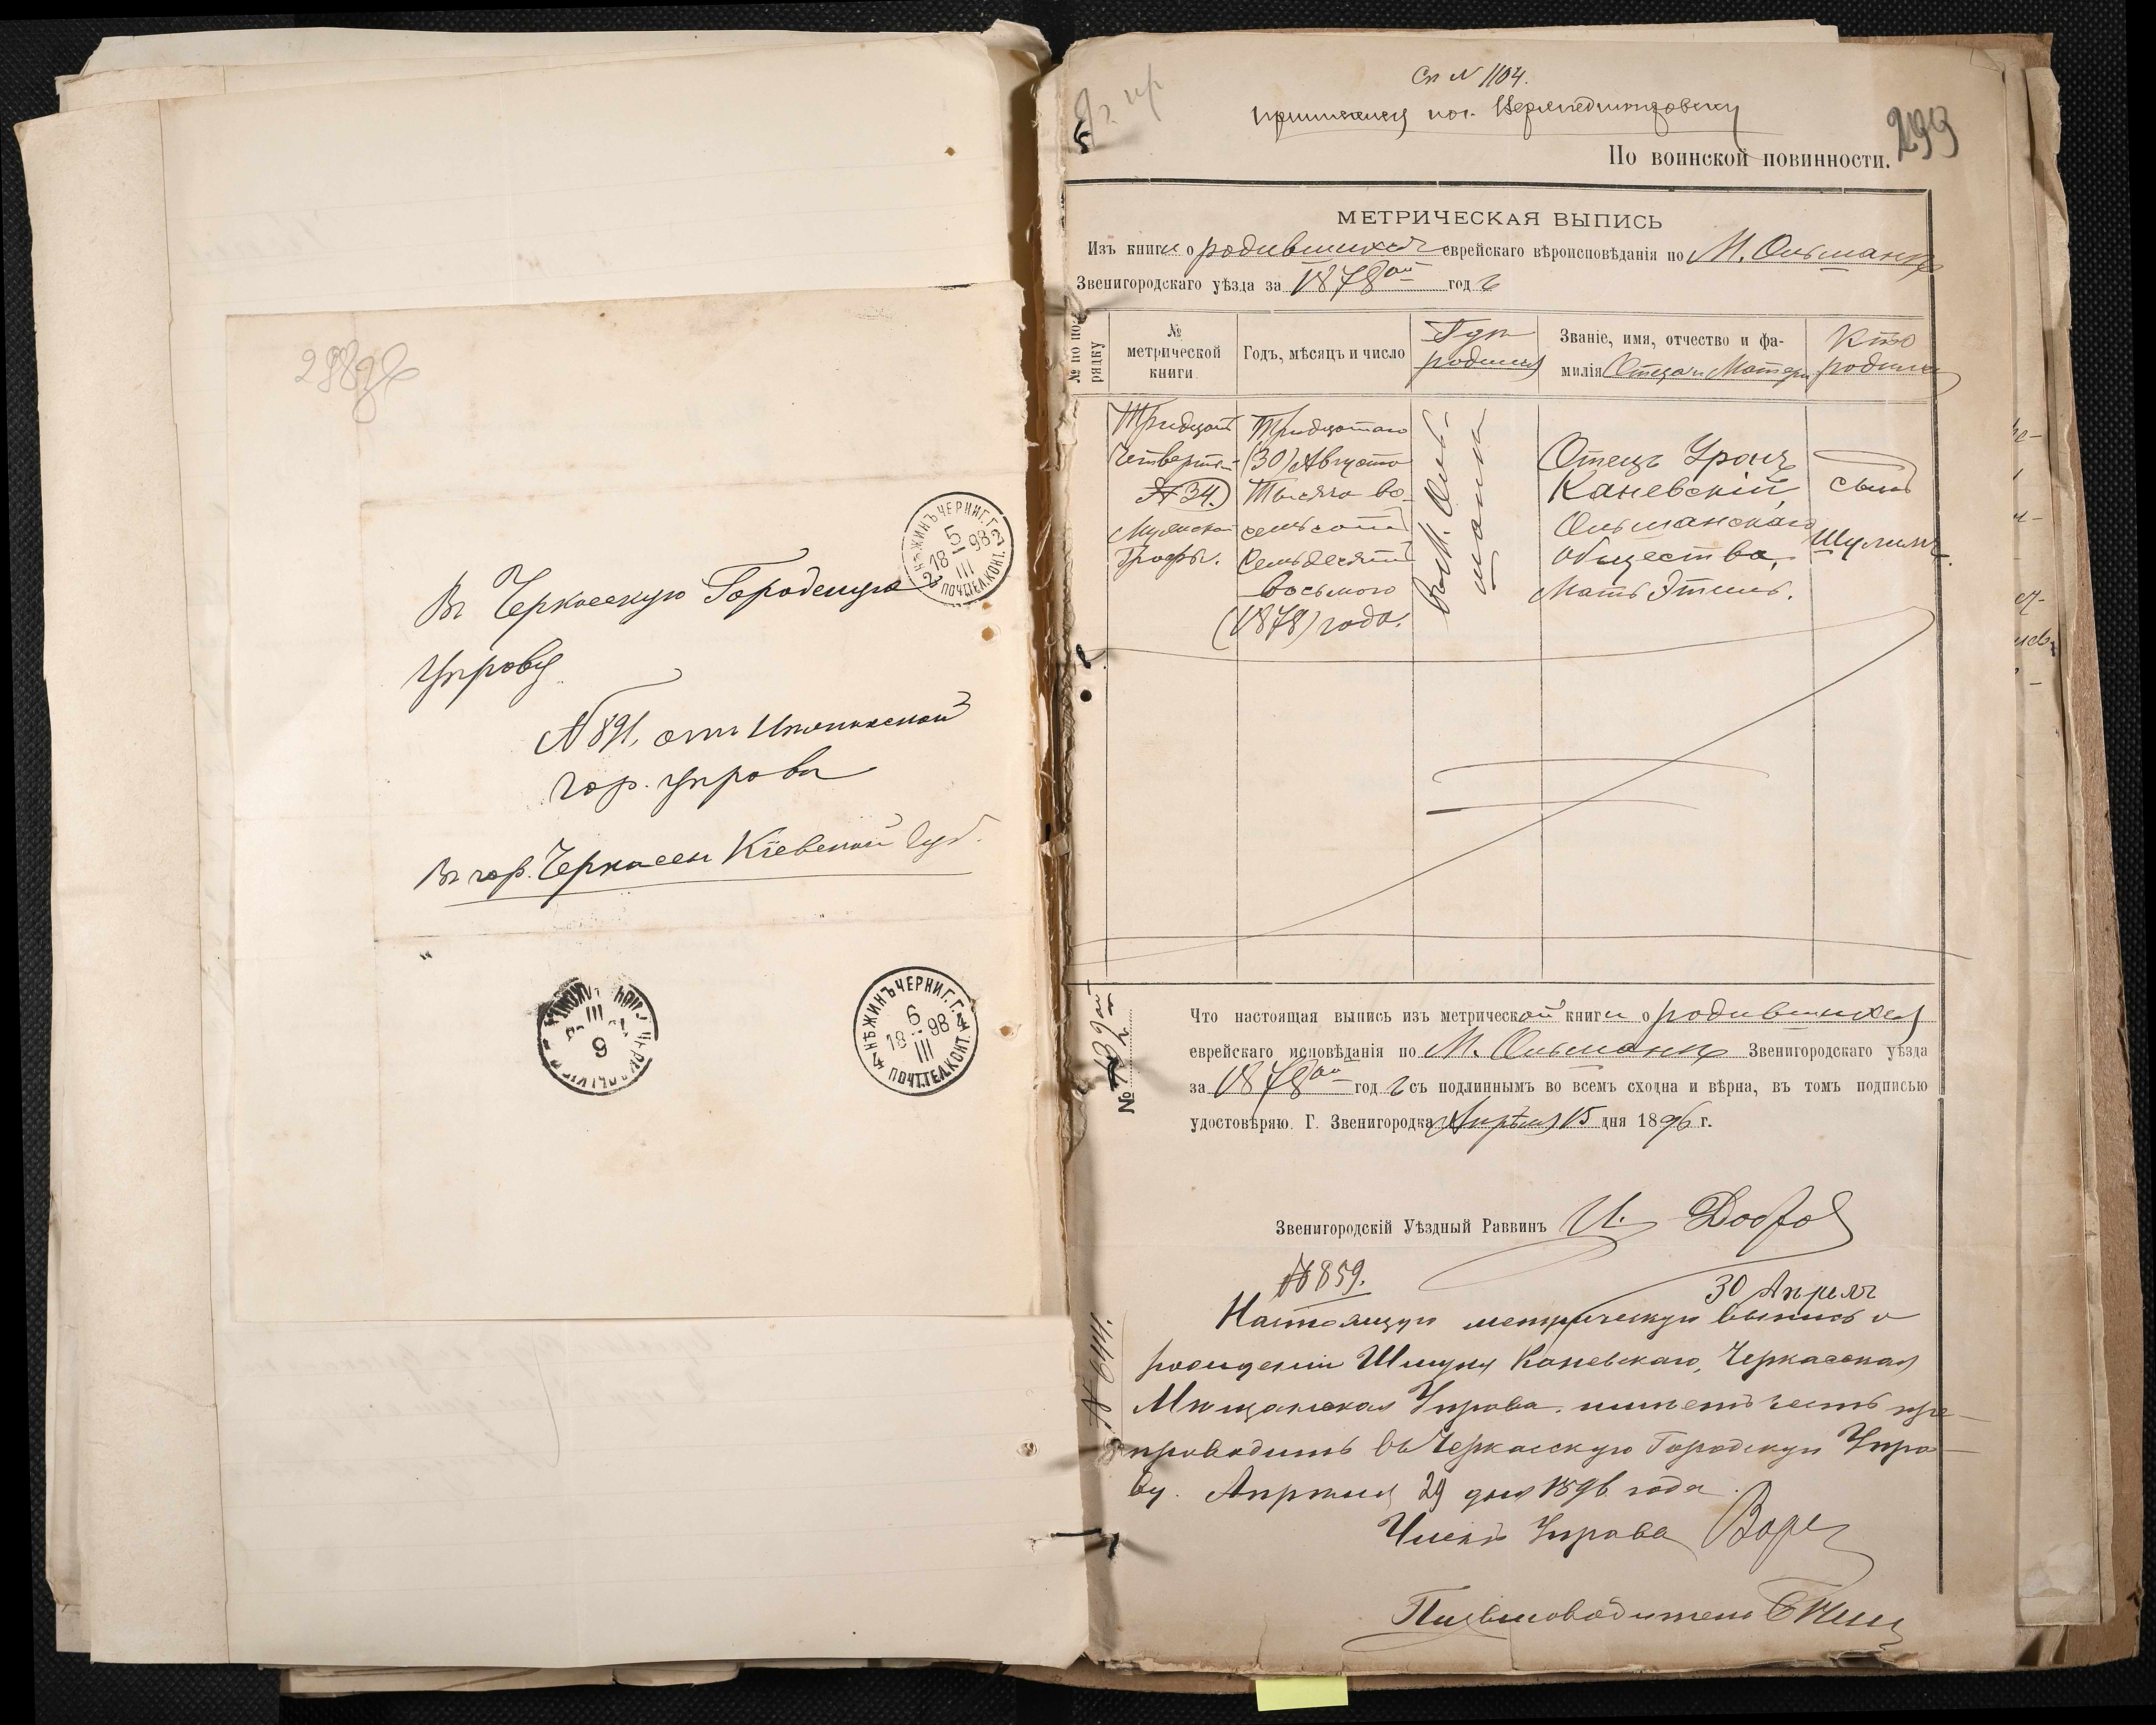 298 об
Въ Черкасскую Городскую
Управу
№ 891, отъ Нѣжинской
гор. управы
Въ гор. Черкассы Кіевской губ.
НѢЖИНЪ ЧЕРНИГ. Г.
5
18 98
III
2 ПОЧТ.ТЕЛ.КОНТ. 2
НѢЖИНЪ ЧЕРНИГ. Г.
6
18 98
III
4 ПОЧТ.ТЕЛ.КОНТ. 4
III
9
Сп № 1104.
299
По воинской повинности.
МЕТРИЧЕСКАЯ ВЫПИСЬ
Изъ книги о родившихся еврейскаго вѣроисповѣданія по М. Ольшанѣ
Звенигородскаго уѣзда за 1878ой год ъ
№ по по-
рядку
№
метрической
книги
Годъ, мѣсяцъ и число
Гдѣ
родился
Званіе, имя, отчество и фа-
милія Отца и Матери
Кто
родился
Тридцать
Четверт
№ 34.)
Мужской
Графы.
Тридцатаго
(30) Августа
Тысяча во-
семьсотъ
Семьдесятъ
Восьмого
(1878) года.
Въ М. Оль-
шанѣ
Отецъ Уронъ
Каневскій,
Ольшанскаго
общества,
Мать Этель.
сынъ
Шулимъ.
Что настоящая выпись изъ метрической книги о родившихся
еврейскаго исповѣданія по М. Ольшанѣ Звенигородскаго уѣзда
за 1878ой год ъ съ подлиннымъ во всемъ сходна и вѣрна, въ томъ подписью
удостовѣряю. Г. Звенигородка Апрѣля 15 дня 1896 г.
№
Звенигородскій Уѣздный Раввинъ И.
№ 859.
30 Апреля
Настоящую метрическую выпись о
рожденіи Шмуля Каневскаго, Черкасская
Мѣщанская Управа имѣетъ честь пре-
проводить въ Черкасскую Городскую Упра-
ву. Апрѣля 29 дня 1896 года.
Членъ Управы
Письмоводитель